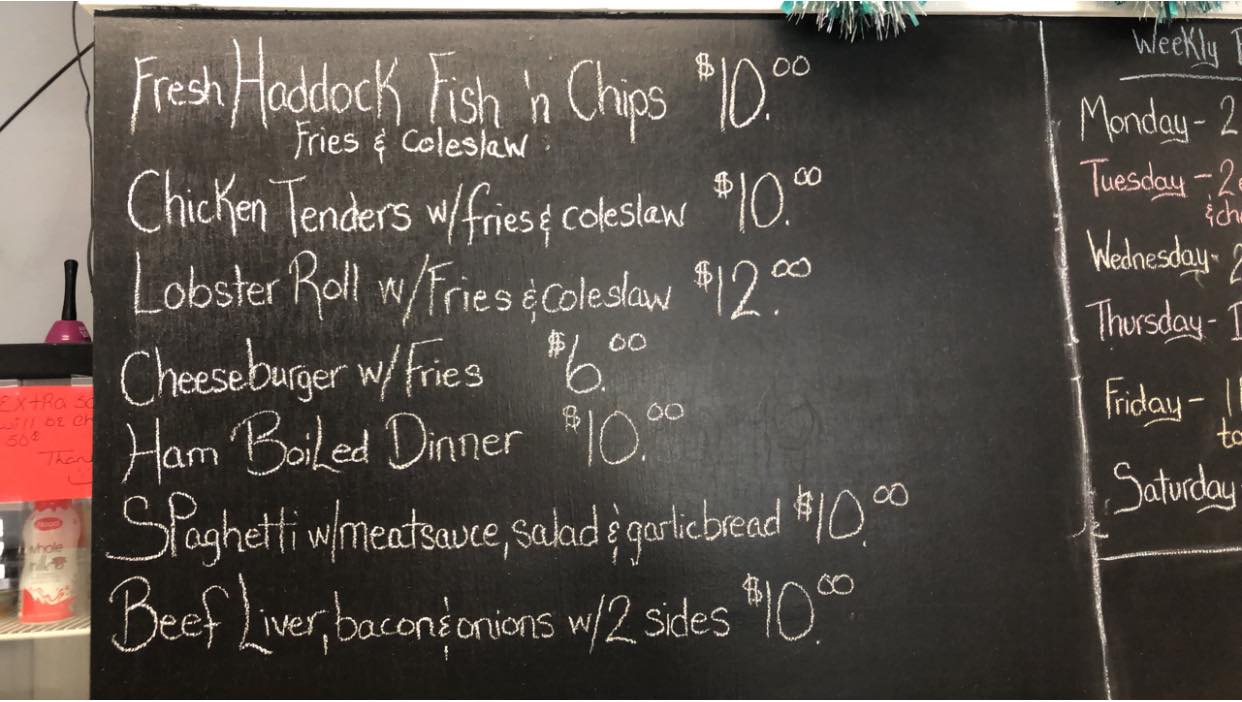 Fresh Haddock Fish 'n Chips $10.00
Fries & Coleslaw
Chicken Tenders w/fries & coleslaw $10.00
Lobster Roll w/Fries & coleslaw $12.00
Cheeseburger w/Fries $6.00
Ham Boiled Dinner $10.00
Spaghetti w/meatsauce, salad & garlicbread $10.00
Beef Liver, bacon & onions w/2 sides $10.00
Weekly
Monday - 2
Tuesday - 2
&
Wednesday - 2
Thursday -
Friday -
to
Saturday
Extra
will be
50¢
whole
milk